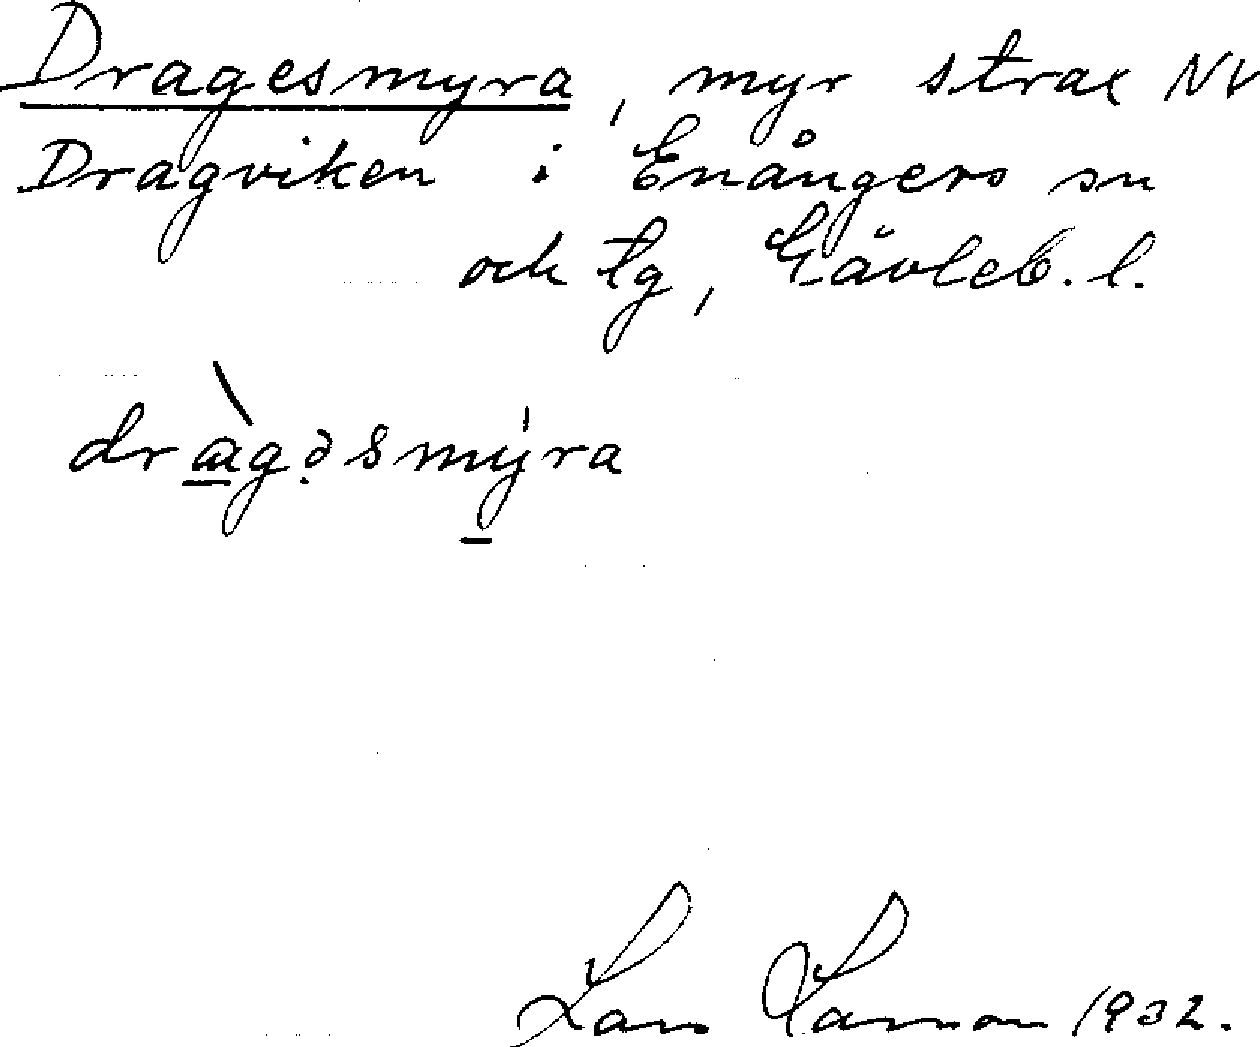 Dragesmyra, myr strax NV
Dragviken i Enångers sn
och tg, Gävleb. l.
drà̱gəsmý̱ra
Lars Larsson 1932.